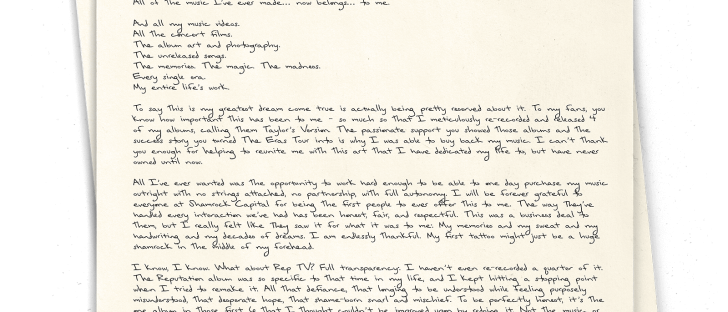 All of the music I've ever made... now belongs... to me.
And all my music videos.
All the concert films.
The album art and photography.
The unreleased songs.
The memories. The magic. The madness.
Every single era.
My entire life's work.
To say this is my greatest dream come true is actually being pretty reserved about it. To my fans, you
know how important this has been to me - so much so that I meticulously re-recorded and released 4
of my albums, calling them Taylor's Version. The passionate support you showed those albums and the
success story you turned The Eras Tour into is why I was able to buy back my music. I can't thank
you enough for helping to reunite me with this art that I have dedicated my life to, but have never
owned until now.
All I've ever wanted was the opportunity to work hard enough to be able to one day purchase my music
outright with no strings attached, no partnership, with full autonomy. I will be forever grateful to
everyone at Shamrock Capital for being the first people to ever offer this to me. The way they've
handled every interaction we've had has been honest, fair, and respectful. This was a business deal to
them, but I really felt like they saw it for what it was to me: My memories and my sweat and my
handwriting and my decades of dreams. I am endlessly thankful. My first tattoo might just be a huge
shamrock in the middle of my forehead.
I know, I know. What about Rep TV? Full transparency: I haven't even re-recorded a quarter of it.
The Reputation album was so specific to that time in my life, and I kept hitting a stopping point
when I tried to remake it. All that defiance, that longing to be understood while feeling purposely
misunderstood, that desperate hope, that shame-born snarl and mischief. To be perfectly honest, it's the
one album in those first 6 that I thought couldn't be improved upon by redoing it. Not the music, or